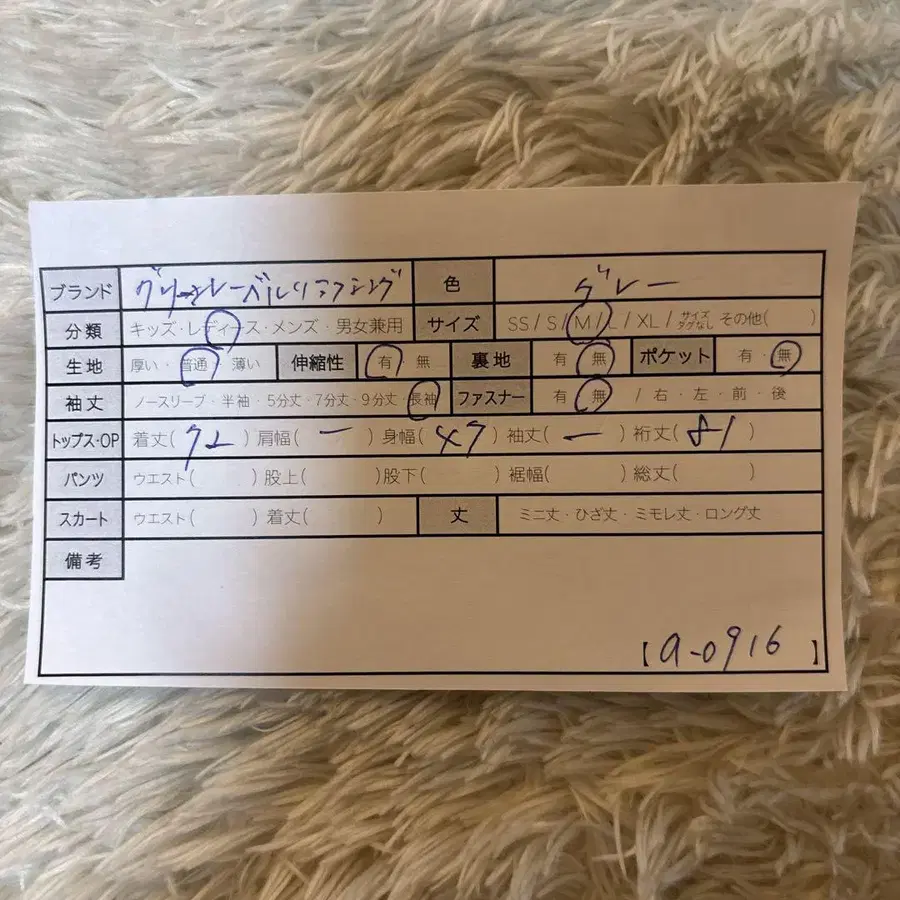 ブランド グリーンレーベルリラクシング 色 グレー
分類 キッズ・レディース・メンズ・男女兼用 サイズ SS / S / M / L / XL / サイズタグなし その他( )
生地 厚い・普通・薄い 伸縮性 有 無 裏地 有 無 ポケット 有・無
袖丈 ノースリーブ・半袖・5分丈・7分丈・9分丈・長袖 ファスナー 有 無 / 右・左・前・後
トップス・OP 着丈( 72 ) 肩幅( ー ) 身幅( 47 ) 袖丈( ー ) 裄丈( 81 )
パンツ ウエスト( ) 股上( ) 股下( ) 裾幅( ) 総丈( )
スカート ウエスト( ) 着丈( ) 丈 ミニ丈・ひざ丈・ミモレ丈・ロング丈
備考
【a-0916】